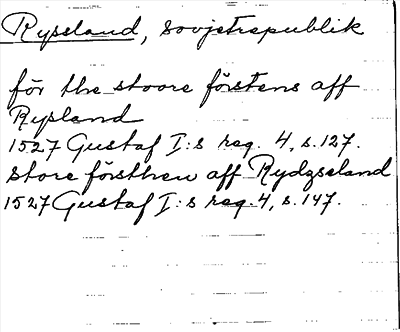 Ryssland, Sovjetrepublik
för the stoore förstens aff
Rysland
1527 Gustaf I:s reg. 4, s. 127.
store försthen aff Rydzseland
1527 Gustaf I:s reg. 4, s. 147.